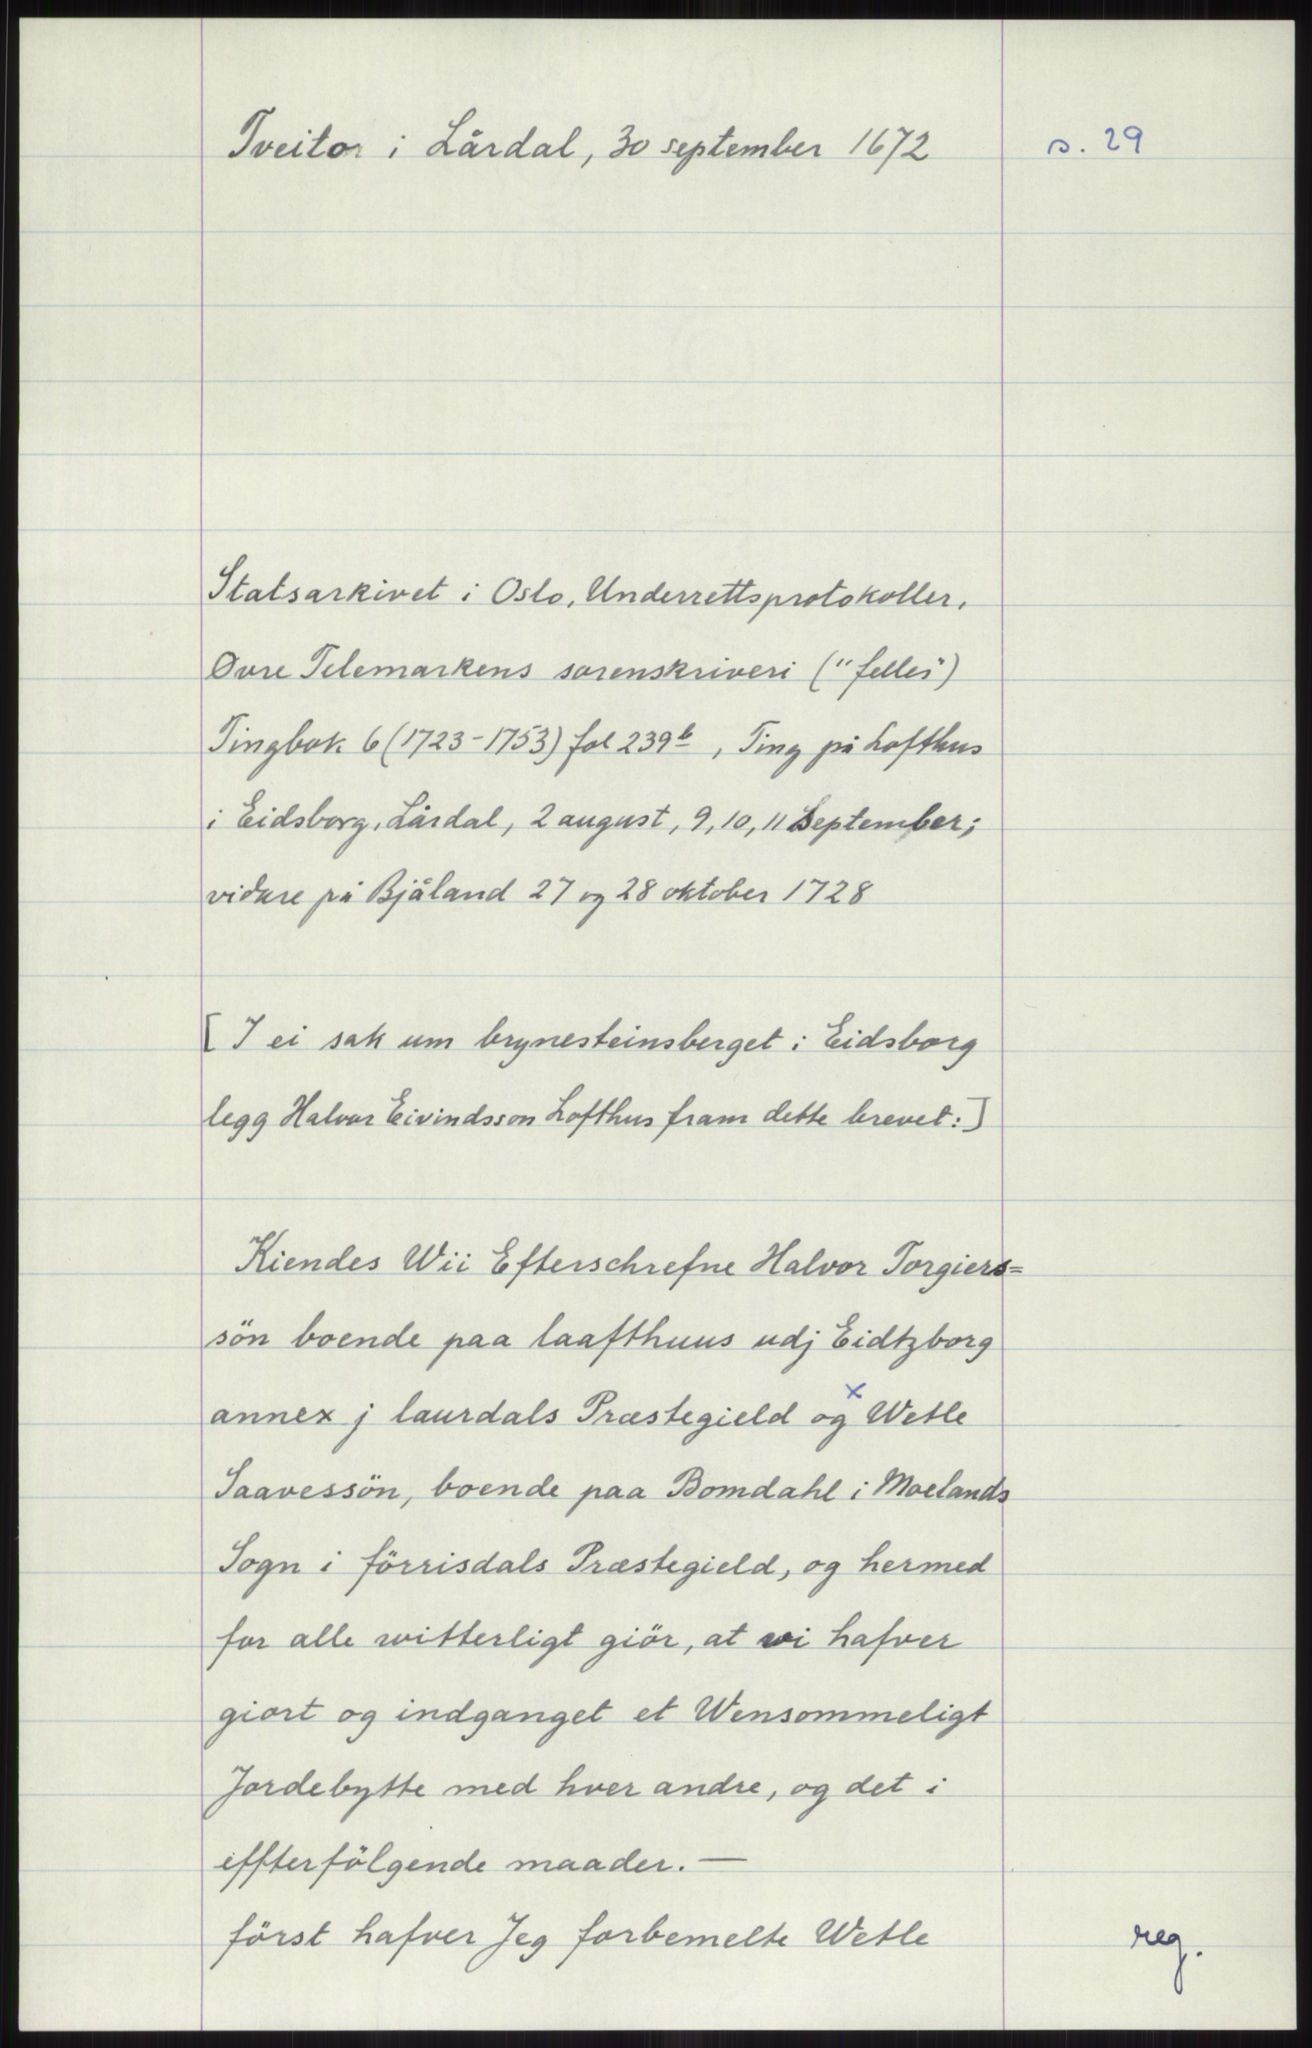 Tveito i Lårdal, 30 september 1672
s. 29
Statsarkivet i Oslo, Underrettsprotokoller,
Øvre Telemarkens sorenskriveri ("felles")
Tingbok 6 (1723-1753) fol 239b, Ting på Lofthus
i Eidsborg, Lårdal, 2 august, 9, 10, 11 september;
vidare på Bjåland 27 og 28 oktober 1728
[I ei sak um brynesteinsberget i Eidsborg
legg Halvor Eivindsson Lofthus fram dette brevet:]
Kiendes Wii Efterschrefne Halvor Torgiers=
sön boende paa laafthuus udj Eidtzborg
annex j laurdals Præstegield og x Wetle
Saavessön, boende paa Bomdahl i Moelands
Sogn i förrisdals Præstegield, og hermed
for alle witterligt giör, at wi hafver
giort og indganget et Wensommeligt
Jordebytte med hver andre, og det i
effterfölgende maader. —
först hafver Jeg forbemelte Wetle
reg.